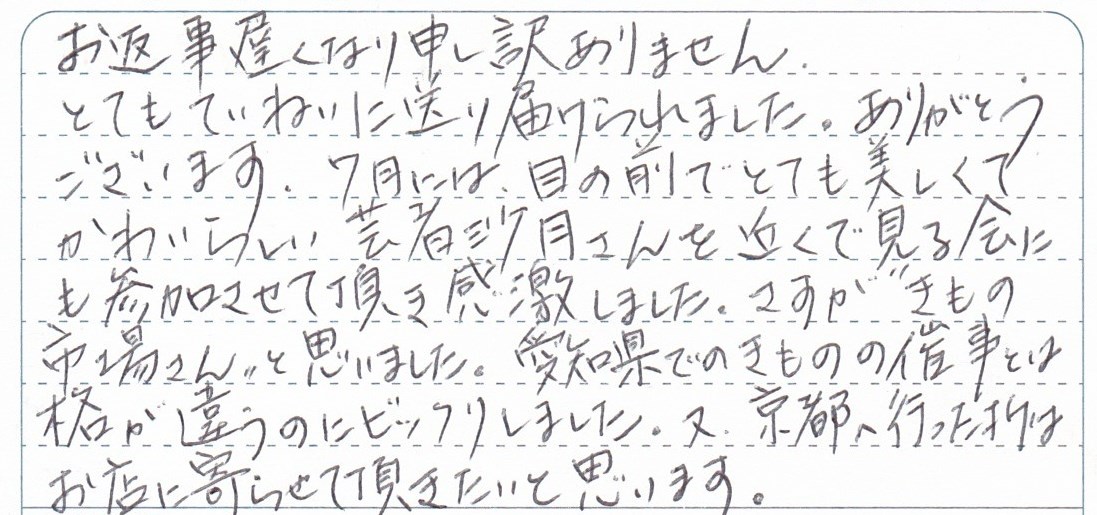 お返事遅くなり申し訳ありません.
とてもていねいに送り届けられました。ありがとう
ございます. 7月には、目の前でとても美しくて
かわいらしい芸者沙月さんを近くで見る会に
も参加させて頂き感激しました。さすが"きもの
市場さん"と思いました。愛知県でのきものの催事とは
格が違うのにビックリしました. 又. 京都へ行った折は
お店に寄らせて頂きたいと思います。